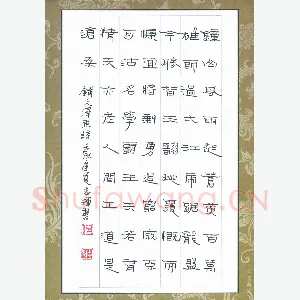 鐘山風雨起蒼黃百萬
雄師過大江虎踞龍盤
今勝昔天翻地覆慨而
慷宜將剩勇追窮寇不
可沽名學霸王天若有
情天亦老人間正道是
滄桑
Shufawang.cn